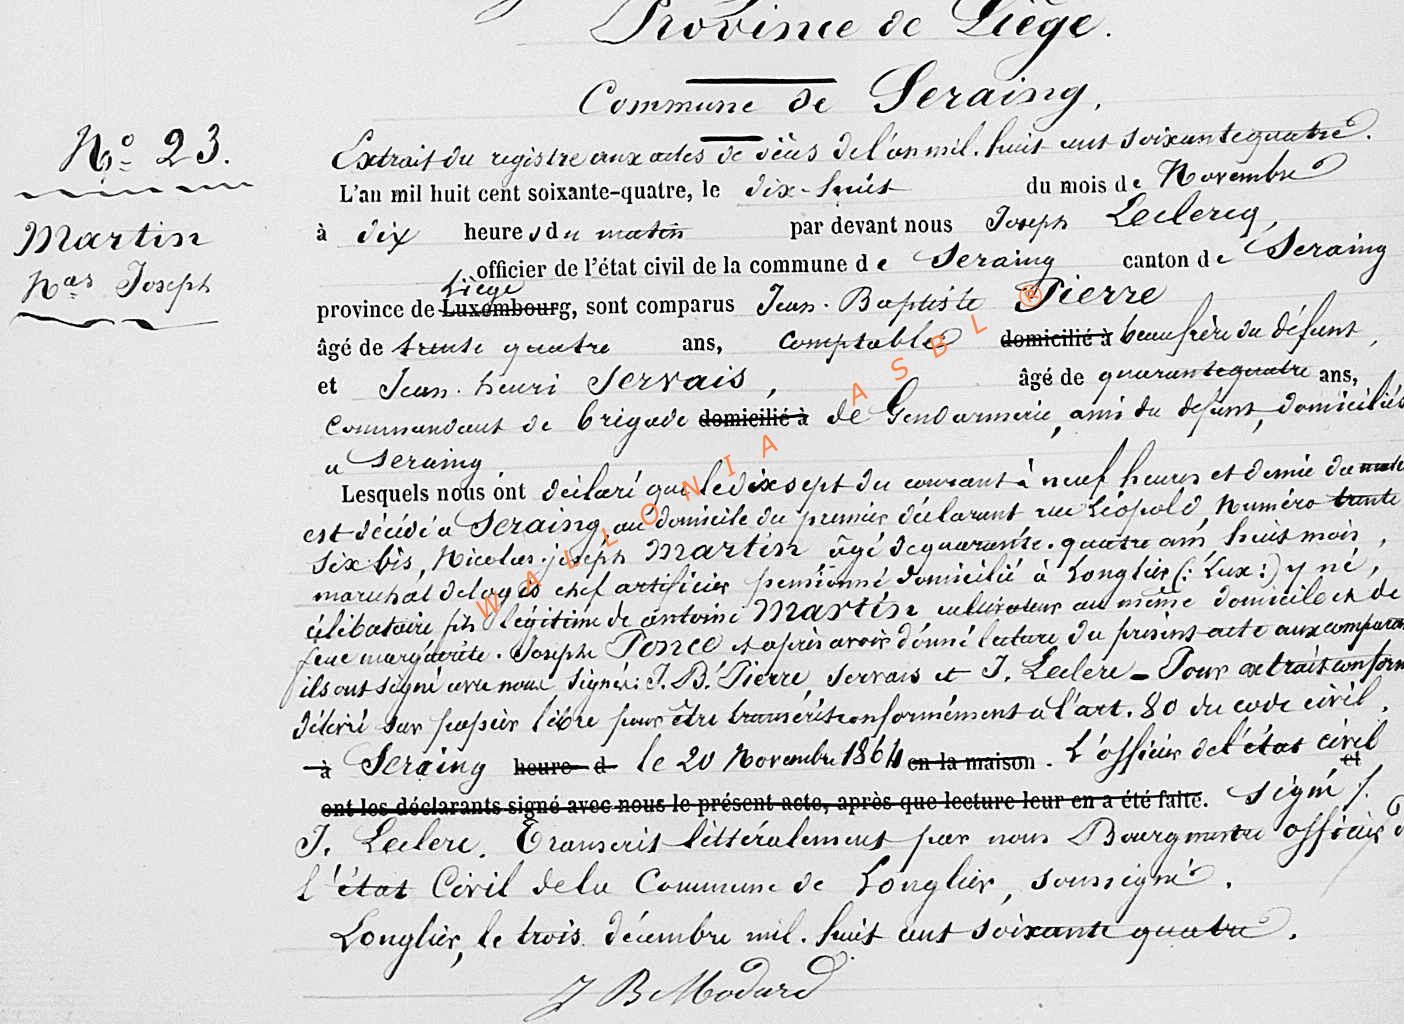 Province de Liège.
Commune de Seraing.
N° 23.
Martin
Nas Joseph
Extrait du registre aux actes de décès de l'an mil huit cent soixante quatre.
L'an mil huit cent soixante-quatre, le dix-huit du mois de Novembre
à dix heures du matin par devant nous Joseph Leclercq,
officier de l'état civil de la commune de Seraing canton de Seraing
Liège
province de Luxembourg, sont comparus Jean-Baptiste Pierre
âgé de trente quatre ans, comptable domicilié à beaufrère du défunt,
et Jean-henri Servais, âgé de quarante quatre ans,
commandant de brigade domicilié à de Gendarmerie, ami du defunt, domiciliés
a Seraing.
Lesquels nous ont déclaré que le dix sept du courant à neuf heures et demie du
est décédé à Seraing, au domicile du premier déclarant rue Léopold, Numéro trente
six bis, Nicolas-joseph Martin âgé de quarante-quatre ans, huit mois,
marechal de logis chef artificier pensionné domicilié à Longlier (: Lux :) y né,
célibataire fils légitime de antoine Martin cultivateur au même domicile et de
feue marguerite-Joseph Ponce et après avoir donné lecture du présent acte aux comparants
ils ont signé avec nous Signé: J. B. Pierre, Servais et J. Leclerc - Pour extrait conforme
délivré sur papier libre pour être transcrit conformément à l'art. 80 du code civil.
à Seraing heure d le 20 Novembre 1864 en la maison. L'officier de l'état civil
et
ont les déclarants signé avec nous le présent acte, après que lecture leur en a été faite. signé /.
J. Leclerc. Transcrit littéralement par nous Bourgmestre officier de
l'état Civil de la Commune de Longlier, soussigné.
Longlier, le trois décembre mil-huit cent soixante quatre.
J B Modard
WALLONIA ASBL ®